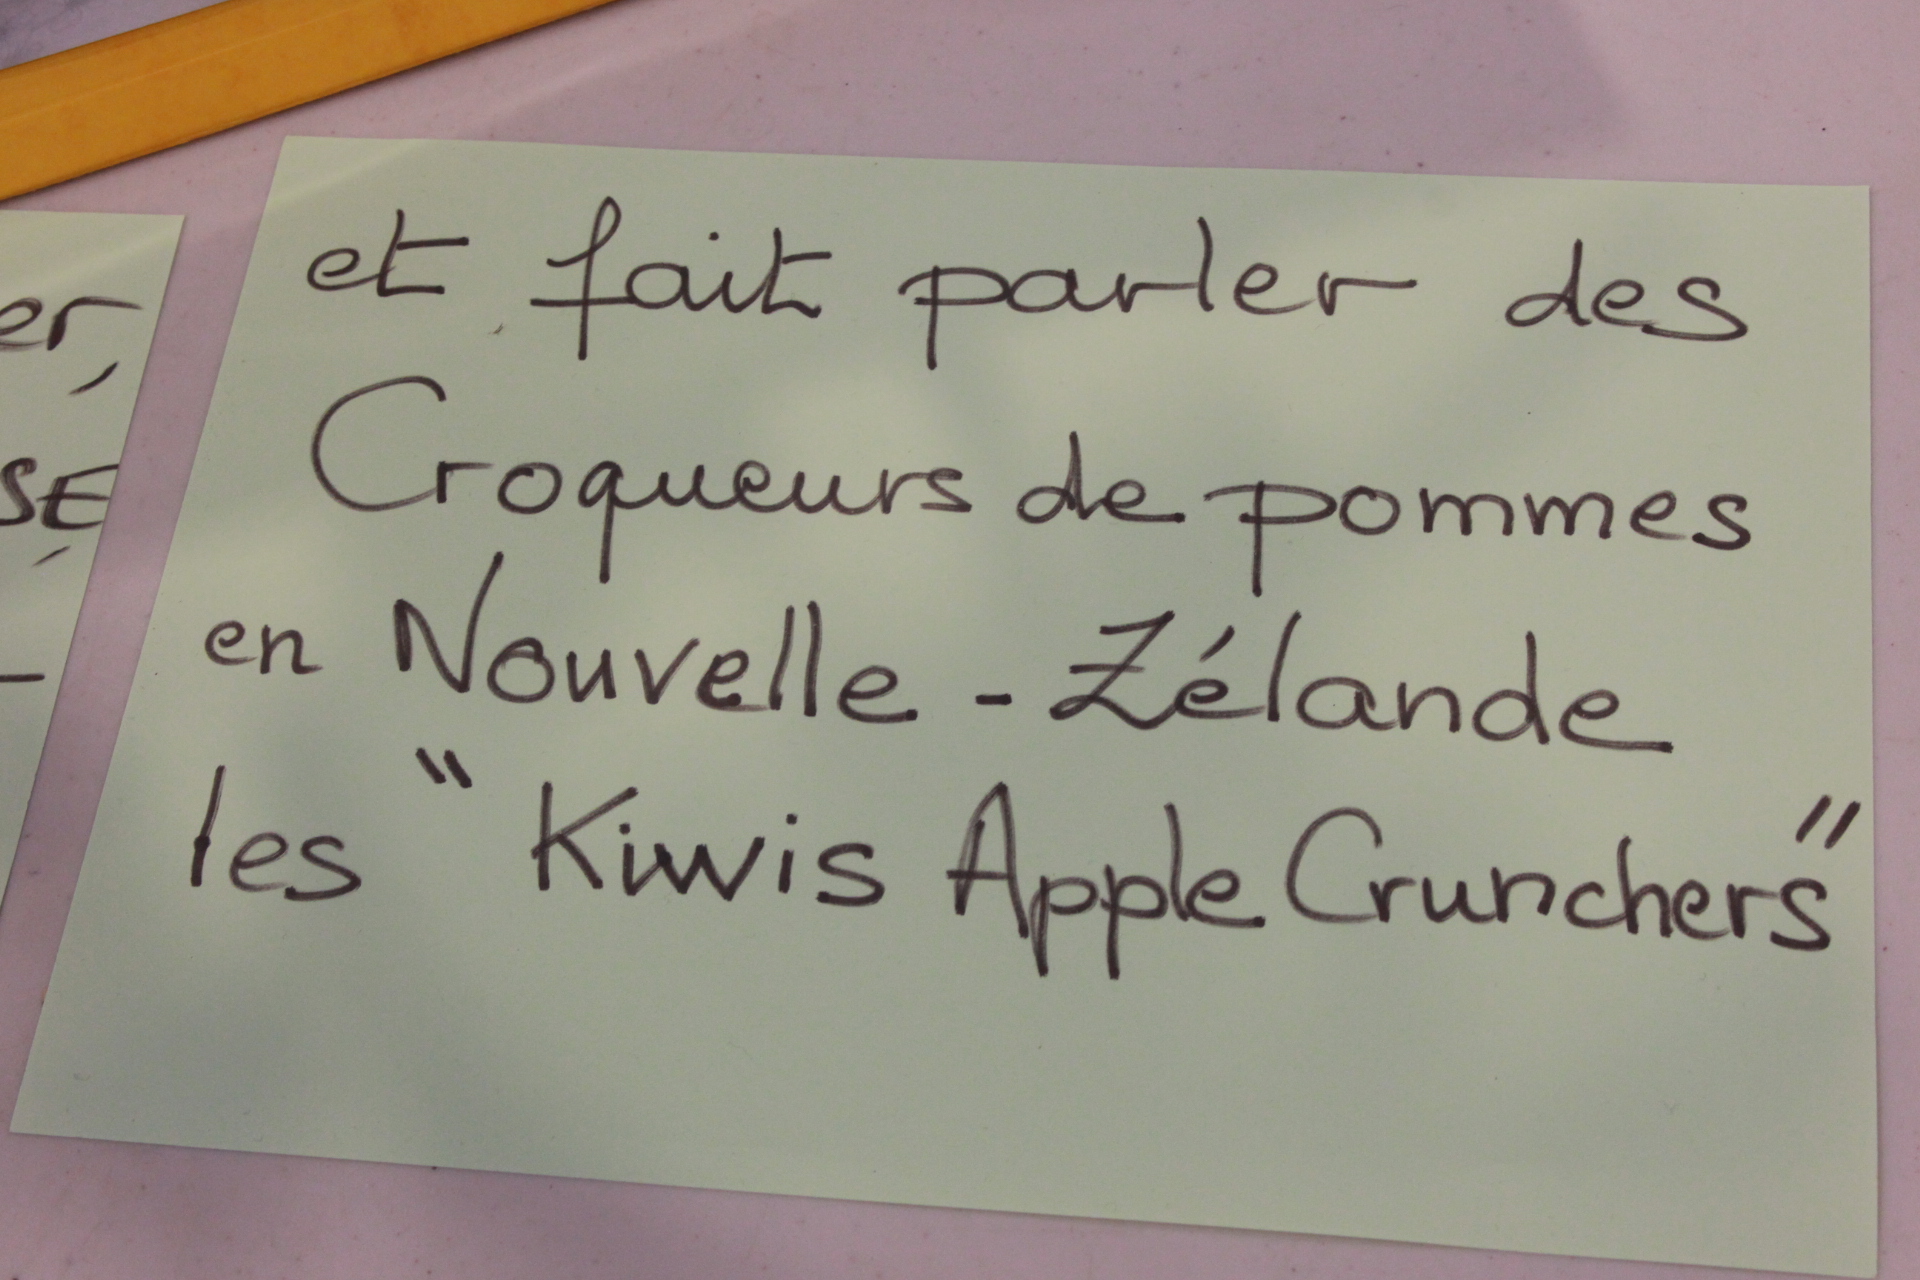 et fait parler des
Croqueurs de pommes
en Nouvelle-Zélande
les "Kiwis Apple Crunchers"